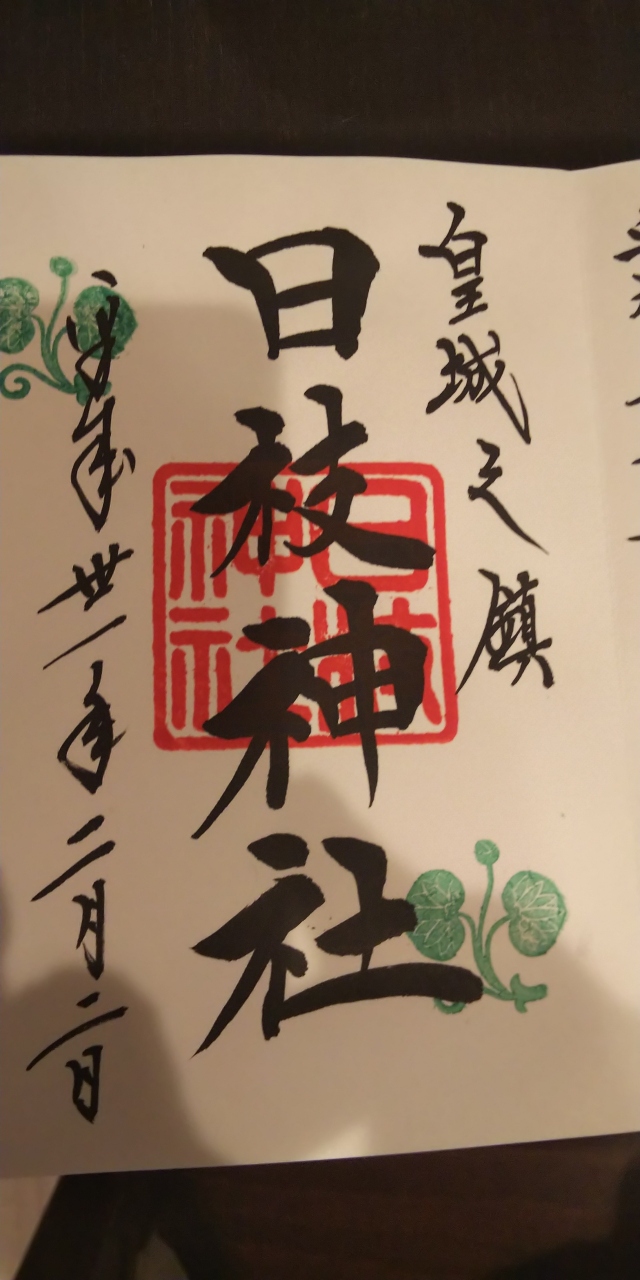 皇城之鎮
日枝神社
日枝
神社
平成丗一年二月二日